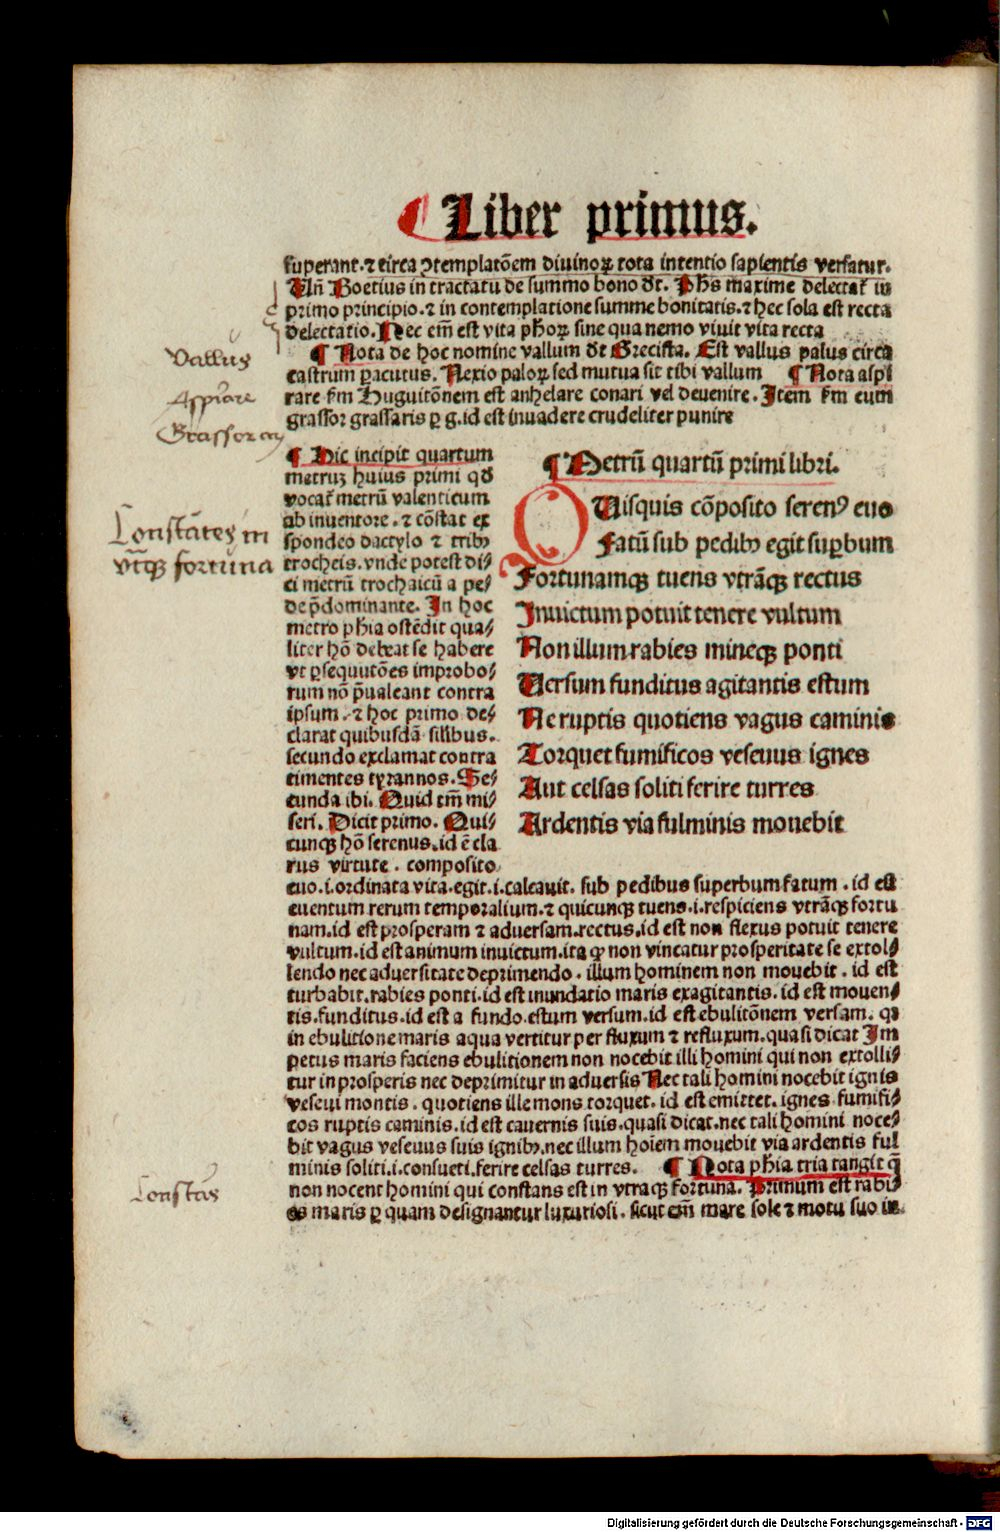 ¶ Liber primus.
superant.⁊ circa ꝯtemplatõem diuinoꝝ tota intentio sapientis versatur.
Uñ Boetius in tractatu de summo bono dt. Phs maxime delectat̃ in
primo principio.⁊ in contemplatione summe bonitatis.⁊ hec sola est recta
delectatio. Nec em̃ est vita phoꝝ sine qua nemo viuit vita recta
¶ Nota de hoc nomine vallum dt Grecista. Est vallus palus circa
castrum ꝑacutus. Nexio paloꝝ sed mutua sit tibi vallum ¶ Nota aspi
rare ẜm Huguitõnem est anhelare conari vel deuenire. Item ẜm eum
grassor grassaris ꝑ g.id est inuadere crudeliter punire
Vallus
Aspirare
Grassor
¶ Hic incipit quartum
metruꝫ huius primi qd
vocat̃ metrũ valenticum
ab inuentore.⁊ cõstat ex
spondeo dactylo ⁊ tribꝰ
trocheis.vnde potest di⸗
ci metrũ trochaicũ a pe⸗
de p̃dominante. In hoc
metro phia ostẽdit qua⸗
liter hõ debeat se habere
vt ꝑsequutões improbo⸗
rum nõ p̃ualeant contra
ipsum.⁊ hoc primo de⸗
clarat quibusdã silibus.
secundo exclamat contra
timentes tyrannos. Se⸗
cunda ibi. Quid tm̃ mi⸗
seri. Dicit primo. Qui⸗
cunqꝫ hõ serenus.id ẽ cla
rus virtute. composito
Constãtes in
vtraqꝫ fortuna
¶ Metrũ quartũ primi libri.
QUisquis cõposito serenꝰ euo
Fatũ sub pedibꝰ egit suꝑbum
Fortunamqꝫ tuens vtrãqꝫ rectus
Inuictum potuit tenere vultum
Non illum rabies mineqꝫ ponti
Uersum funditus agitantis estum
Ne ruptis quotiens vagus caminis
Torquet fumificos veseuus ignes
Aut celsas soliti ferire turres
Ardentis via fulminis mouebit
euo.i.ordinata vita.egit.i.calcauit. sub pedibus superbum fatum. id est
euentum rerum temporalium.⁊ quicunqꝫ tuens.i.respiciens vtrãqꝫ fortu
nam.id est prosperam ⁊ aduersam.rectus.id est non flexus potuit tenere
vultum.id est animum inuictum.ita ꝙ non vincatur prosperitate se extol⸗
lendo nec aduersitate deprimendo. illum hominem non mouebit. id est
turbabit.rabies ponti.id est inundatio maris exagitantis. id est mouen⸗
tis.funditus.id est a fundo.estum versum.id est ebulitõnem versam. qꝛ
in ebulitione maris aqua vertitur per fluxum ⁊ refluxum.quasi dicat Im
petus maris faciens ebulitionem non nocebit illi homini qui non extolli⸗
tur in prosperis nec deprimitur in aduersis Nec tali homini nocebit ignis
veseui montis. quotiens ille mons torquet. id est emittet. ignes fumifi⸗
cos ruptis caminis.id est cauernis suis.quasi dicat.nec tali homini noce⸗
bit vagus veseuus suis ignibꝰ.nec illum hoiem mouebit via ardentis ful
minis soliti.i.consueti.ferire celsas turres. ¶ Nota phia tria tangit q̃
non nocent homini qui constans est in vtraqꝫ fortuna. Primum est rabi⸗
es maris ꝑ quam designantur luxuriosi. sicut em̃ mare sole ⁊ motu suo in
Constãs
Digitalisierung gefördert durch die Deutsche Forschungsgemeinschaft - DFG